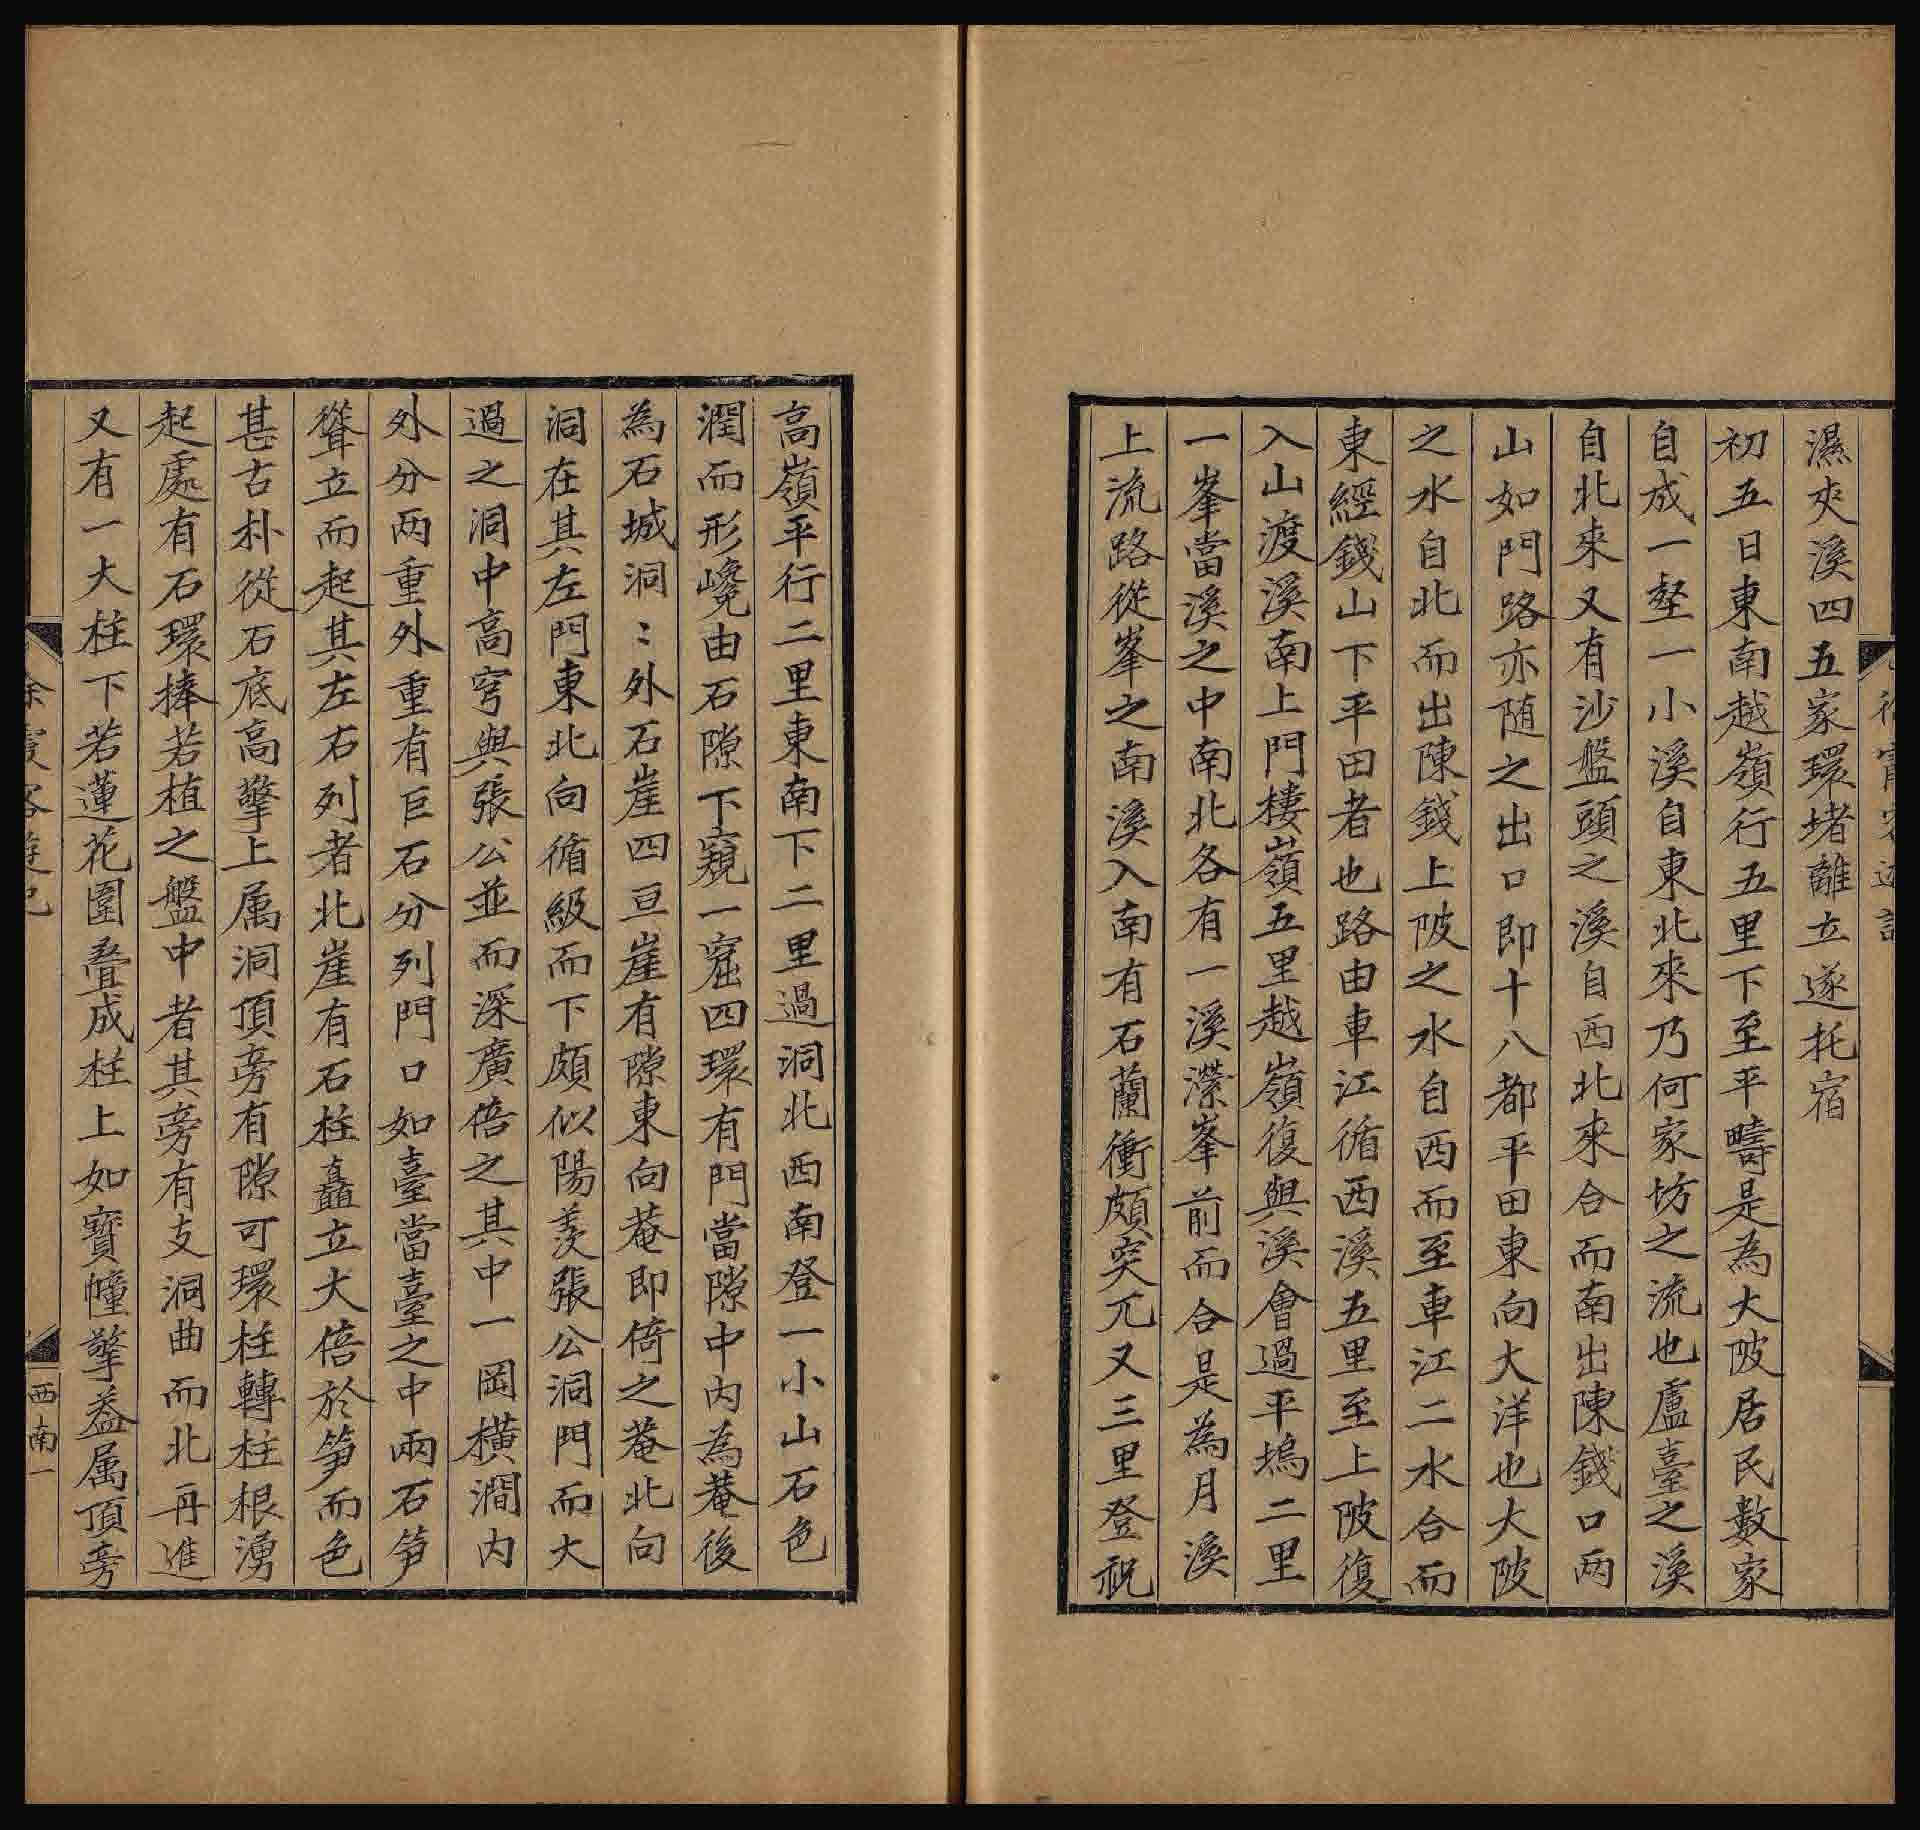 濕夾溪四五家環堵離立遂托宿
初五日東南越嶺行五里下至平疇是為大陂居民數家
自成一壑一小溪自東北來乃何家坊之流也盧臺之溪
自北來又有沙盤頭之溪自西北來合而南出陳錢口兩
山如門路亦随之出口即十八都平田東向大洋也大陂
之水自北而出陳錢上陂之水自西而至車江二水合而
東經錢山下平田者也路由車江循西溪五里至上陂復
入山渡溪南上門樓嶺五里越嶺復與溪會過平塢二里
一峯當溪之中南北各有一溪瀠峯前而合是為月溪
上流路從峯之南溪入南有石蘭衝頗突兀又三里登祝
高嶺平行二里東南下二里過洞北西南登一小山石色
潤而形巉由石隙下窺一窟四環有門當隙中内為菴後
為石城洞〻外石崖四亘崖有隙東向菴即倚之菴北向
洞在其左門東北向循級而下頗似陽羨張公洞門而大
過之洞中高穹與張公並而深廣倍之其中一岡横澗内
外分两重外重有巨石分列門口如臺當臺之中兩石筍
聳立而起其左右列者北崖有石柱矗立大倍於笋而色
甚古朴從石底高擎上属洞頂旁有隙可環柱轉柱根湧
起處有石環捧若植之盤中者其旁有支洞曲而北再進
又有一大柱下若蓮花圍叠成柱上如寶幢擎蓋属頂旁
西南一